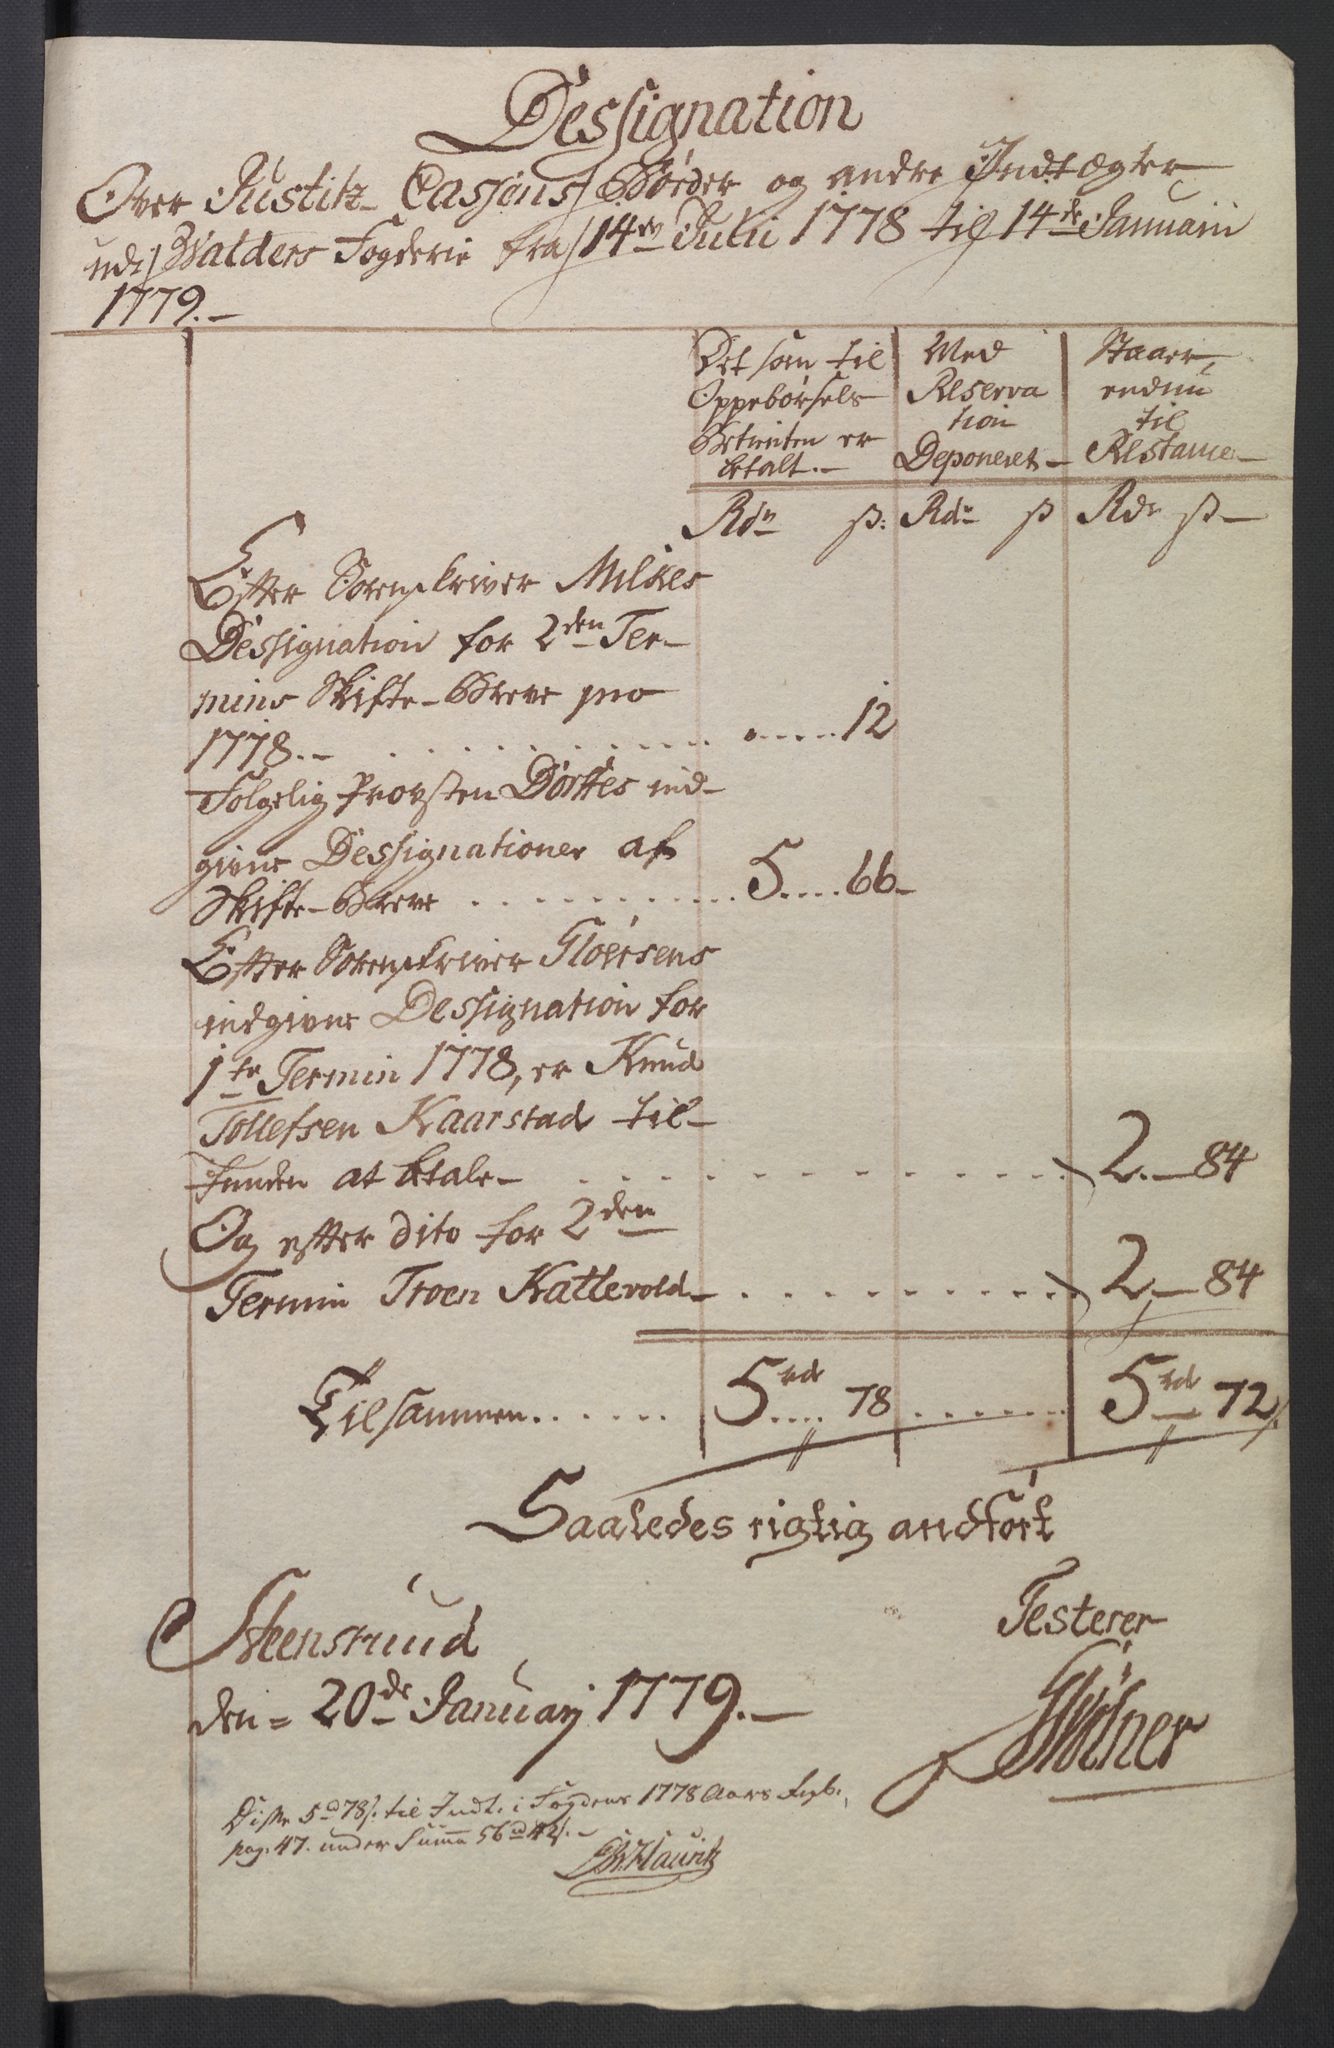 Dessignation
Over Justitz Cassens Bøder og andre Indtægter
udi Walders Fogderie fra 14de Julii 1778 til 14de Januarii
1779.-
Det som til
Oppebørsels
Betienten er
betalt.-
Med
Reserva
tion
Deponeret-
Staaer
endnu
til
Restance-
Rdr ß: Rdr ß Rdr ß-
Efter Sorenskriver Meldes
Dessignation for 2den Ter-
mins Skifte-Breve pro
1778.- 12
Følgelig Provsten Dorffes ind-
givne Dessignationer af
Skifte-Breve 5 66-
Efter Sorenskriver Gloersens
indgivne Dessignation for
1te Termin 1778, er Knud
Tollefsen Kaarstad til-
funden at betale- 2.-84
Og efter dito for 2den
Termin Troen Kattevold- 2.-84
Tilsammen 5rd 78 5rd 72ß
Saaledes rigtig andført
Testerer
Steenstrud
den= 20de Januarj 1779.-
Diße 5rd 78ß. til Indt. i Fogdens 1778 Aars Regb.,
pag. 47. under Summa 56rd 42ß.-